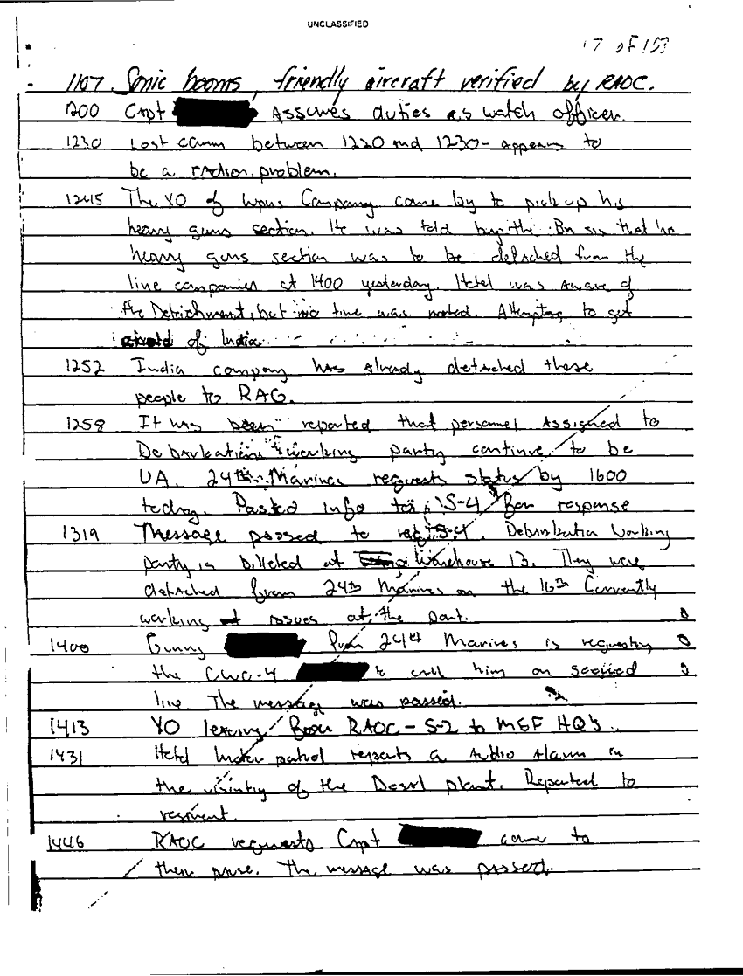 UNCLASSIFIED
17 of 153
1107 Sonic booms, friendly aircraft verified by RAOC.
1200 Capt Assumes duties as watch officer.
1230 Lost comm between 1220 and 1230 - appears to
be a radio problem.
1245 The XO of Wpns Company came by to pick up his
heavy guns section. It was told by the Bn that his
heavy guns section was to be detached from the
line companies at 1400 yesterday. was aware of
the Detachment, but no time was noted. Attempting to get
of India
1252 India company has already detached these
people to RAG.
1258 It has been reported that personnel assigned to
Debarkation working party continue to be
UA. 24th Marines requests status by 1600
today. Passed info to S-4 for response
1319 Message passed to S-4. Debarkation Working
party is billeted at Warehouse 13. They were
detached from 24th Marines on the 16th Currently
working issues at the Port.
1400 Gunny from 24th Marines is requesting
the to call him on secured
line The message was passed.
1413 XO leaving from RAOC - S-2 to MEF HQ's.
1431 Motor patrol reports a Audio Alarm in
the vicinity of the plant. Reported to
regiment.
1446 RAOC requests Capt come to
there The message was passed.